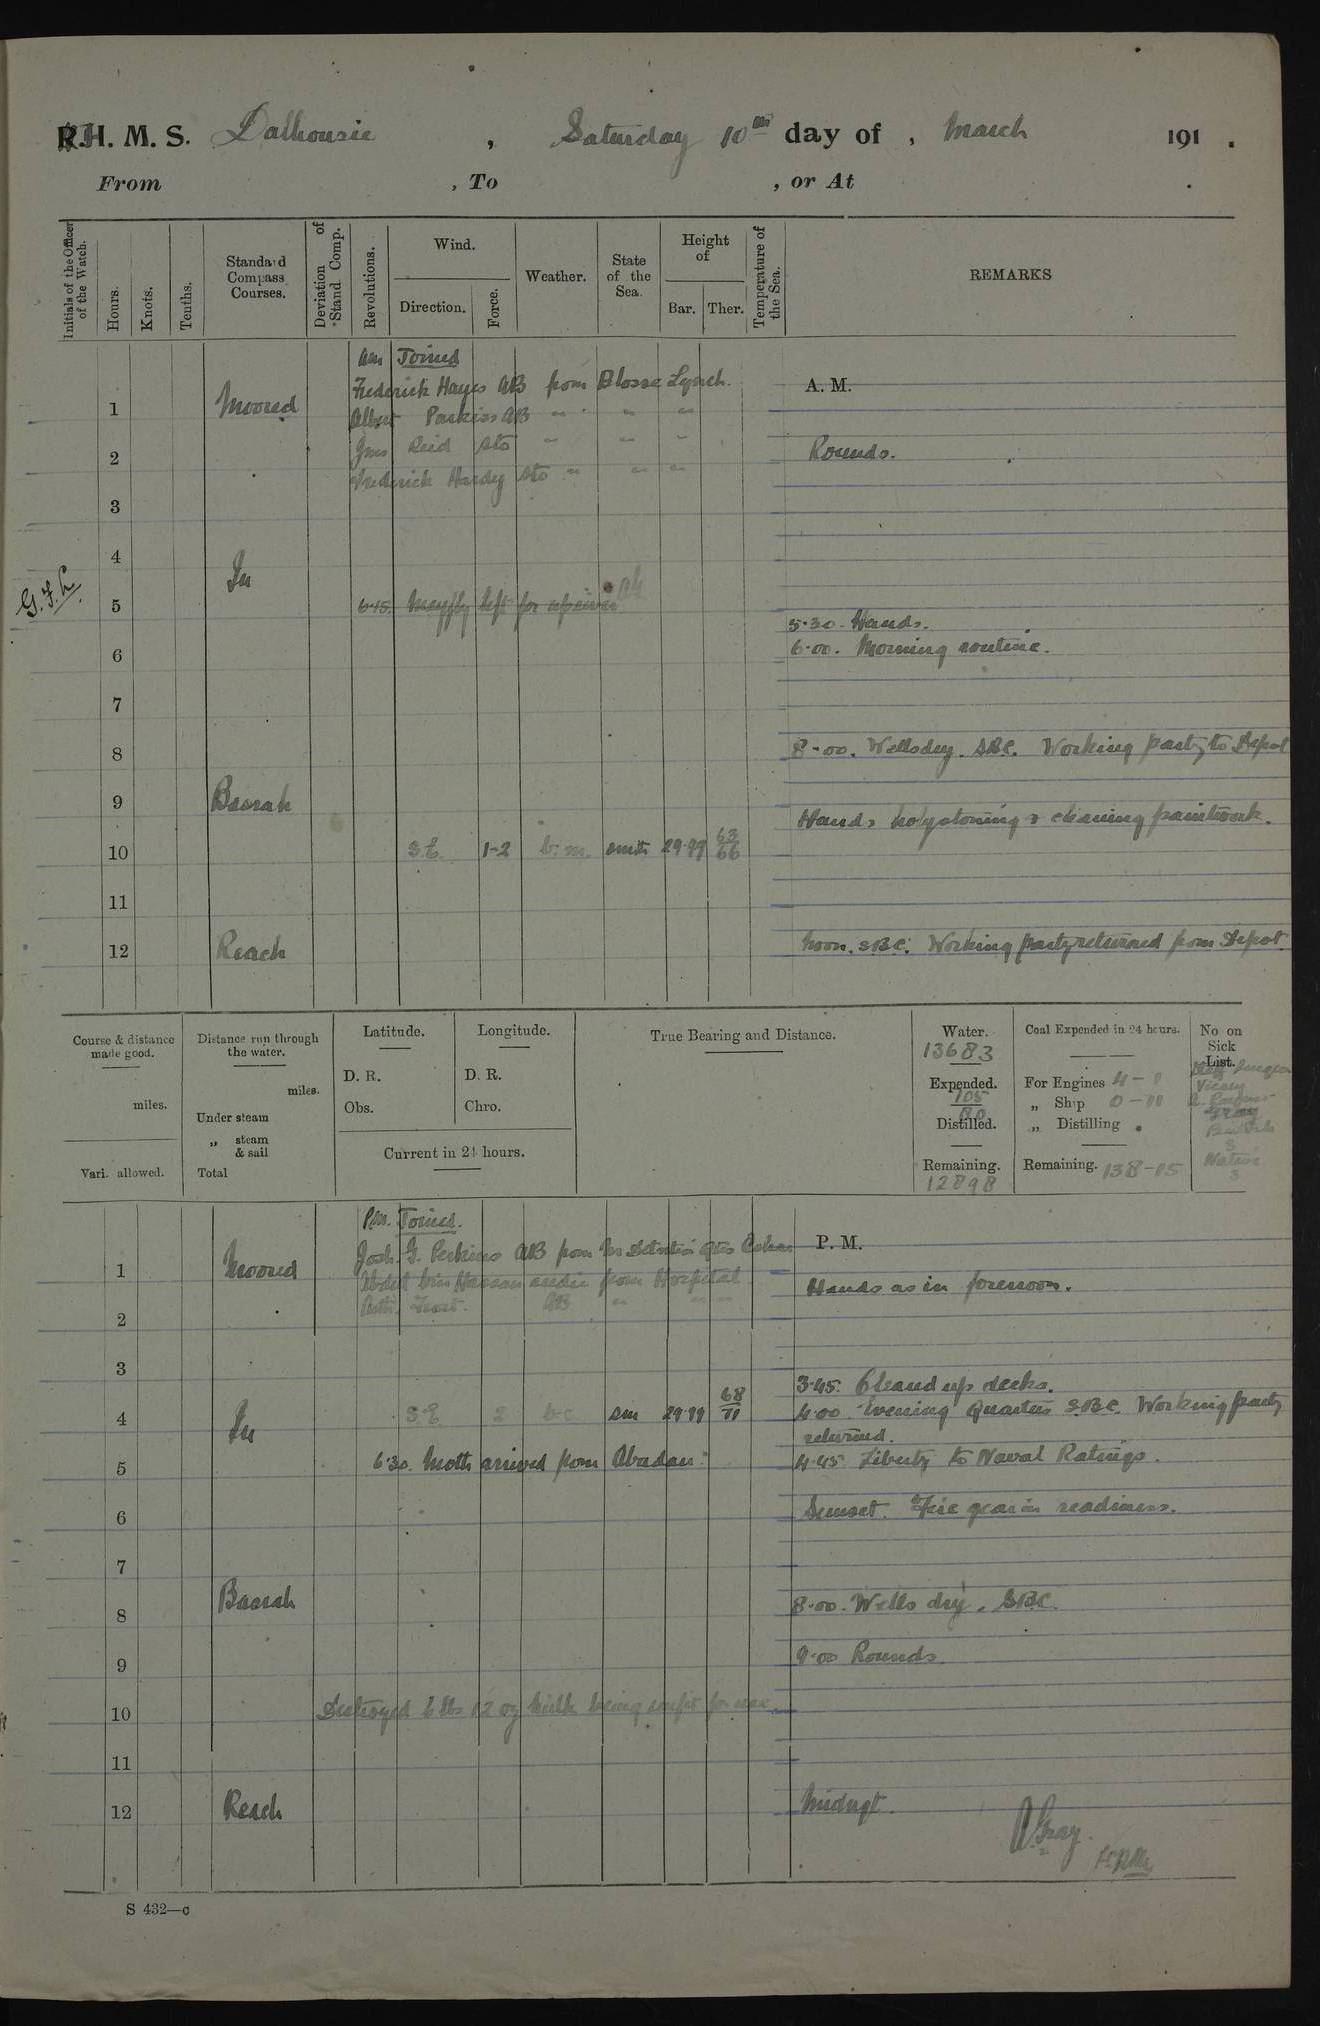 R.H. M. S. Dalhousie , Saturday 10th day of , March 191 .
From , To , or At .
Initials of the Officer of the Watch.
Hours.
Knots.
Tenths.
Standard Compass Courses.
Deviation of Stand. Comp.
Revolutions.
Wind.
Direction.
Force.
Weather.
State of the Sea.
Height of
Bar.
Ther.
Temperature of the Sea.
REMARKS
Am Joined
Frederick Hayes AB from Blosse Lynch.
A. M.
1 Moored
Albert Parkiss AB " " "
Reid Sto " " "
2 Rounds.
Frederick Hardey Sto " " "
3
4
In
G.F.L.
5
6.45. Mayfly left for upriver
5.30. Hands.
6 6.00. Morning routine.
7
8 8.00. Wells dry. SBC. Working party to Depot
9 Basrah
Hands holystoning & cleaning paintwork.
10 S.E. 1-2 b.m. smth 29.99 63/66
11
12 Reach Noon. SBC. Working party returned from Depot
Course & distance made good.
miles.
Vari. allowed.
Distance run through the water.
miles.
Under steam
„ steam & sail
Total
Latitude.
D. R.
Obs.
Longitude.
D. R.
Chro.
Current in 24 hours.
True Bearing and Distance.
Water.
13683
Expended.
705
80
Distilled.
Remaining.
12898
Coal Expended in 24 hours.
For Engines 4-0
„ Ship 0-11
„ Distilling .
Remaining. 138-05
No on Sick List.
Staff Surgeon
Vicary
Gray
3
Native
3
Pm. Joined.
Josh. G. Perkins AB from
P. M.
1 Moored
Abdul bin Hassan from Hospital
Hands as in forenoon.
Frost. AB " " "
2
3
3.45. Cleaned up decks.
4 S.E. 2 b.c. sm 29.99 68/71
4.00. Evening Quarters SBC. Working party
In
returned.
5 6.30. Moth arrived from Abadan.
4.45. Liberty to Naval Ratings.
6 Sunset. Fire gear in readiness.
7
Basrah
8 8.00. Wells dry. SBC.
9 9.00 Rounds.
10 Destroyed 6 lbs 12 oz milk being unfit for use.
11
12 Reach Midngt.
A Gray.
Lt RIM
S 432—c